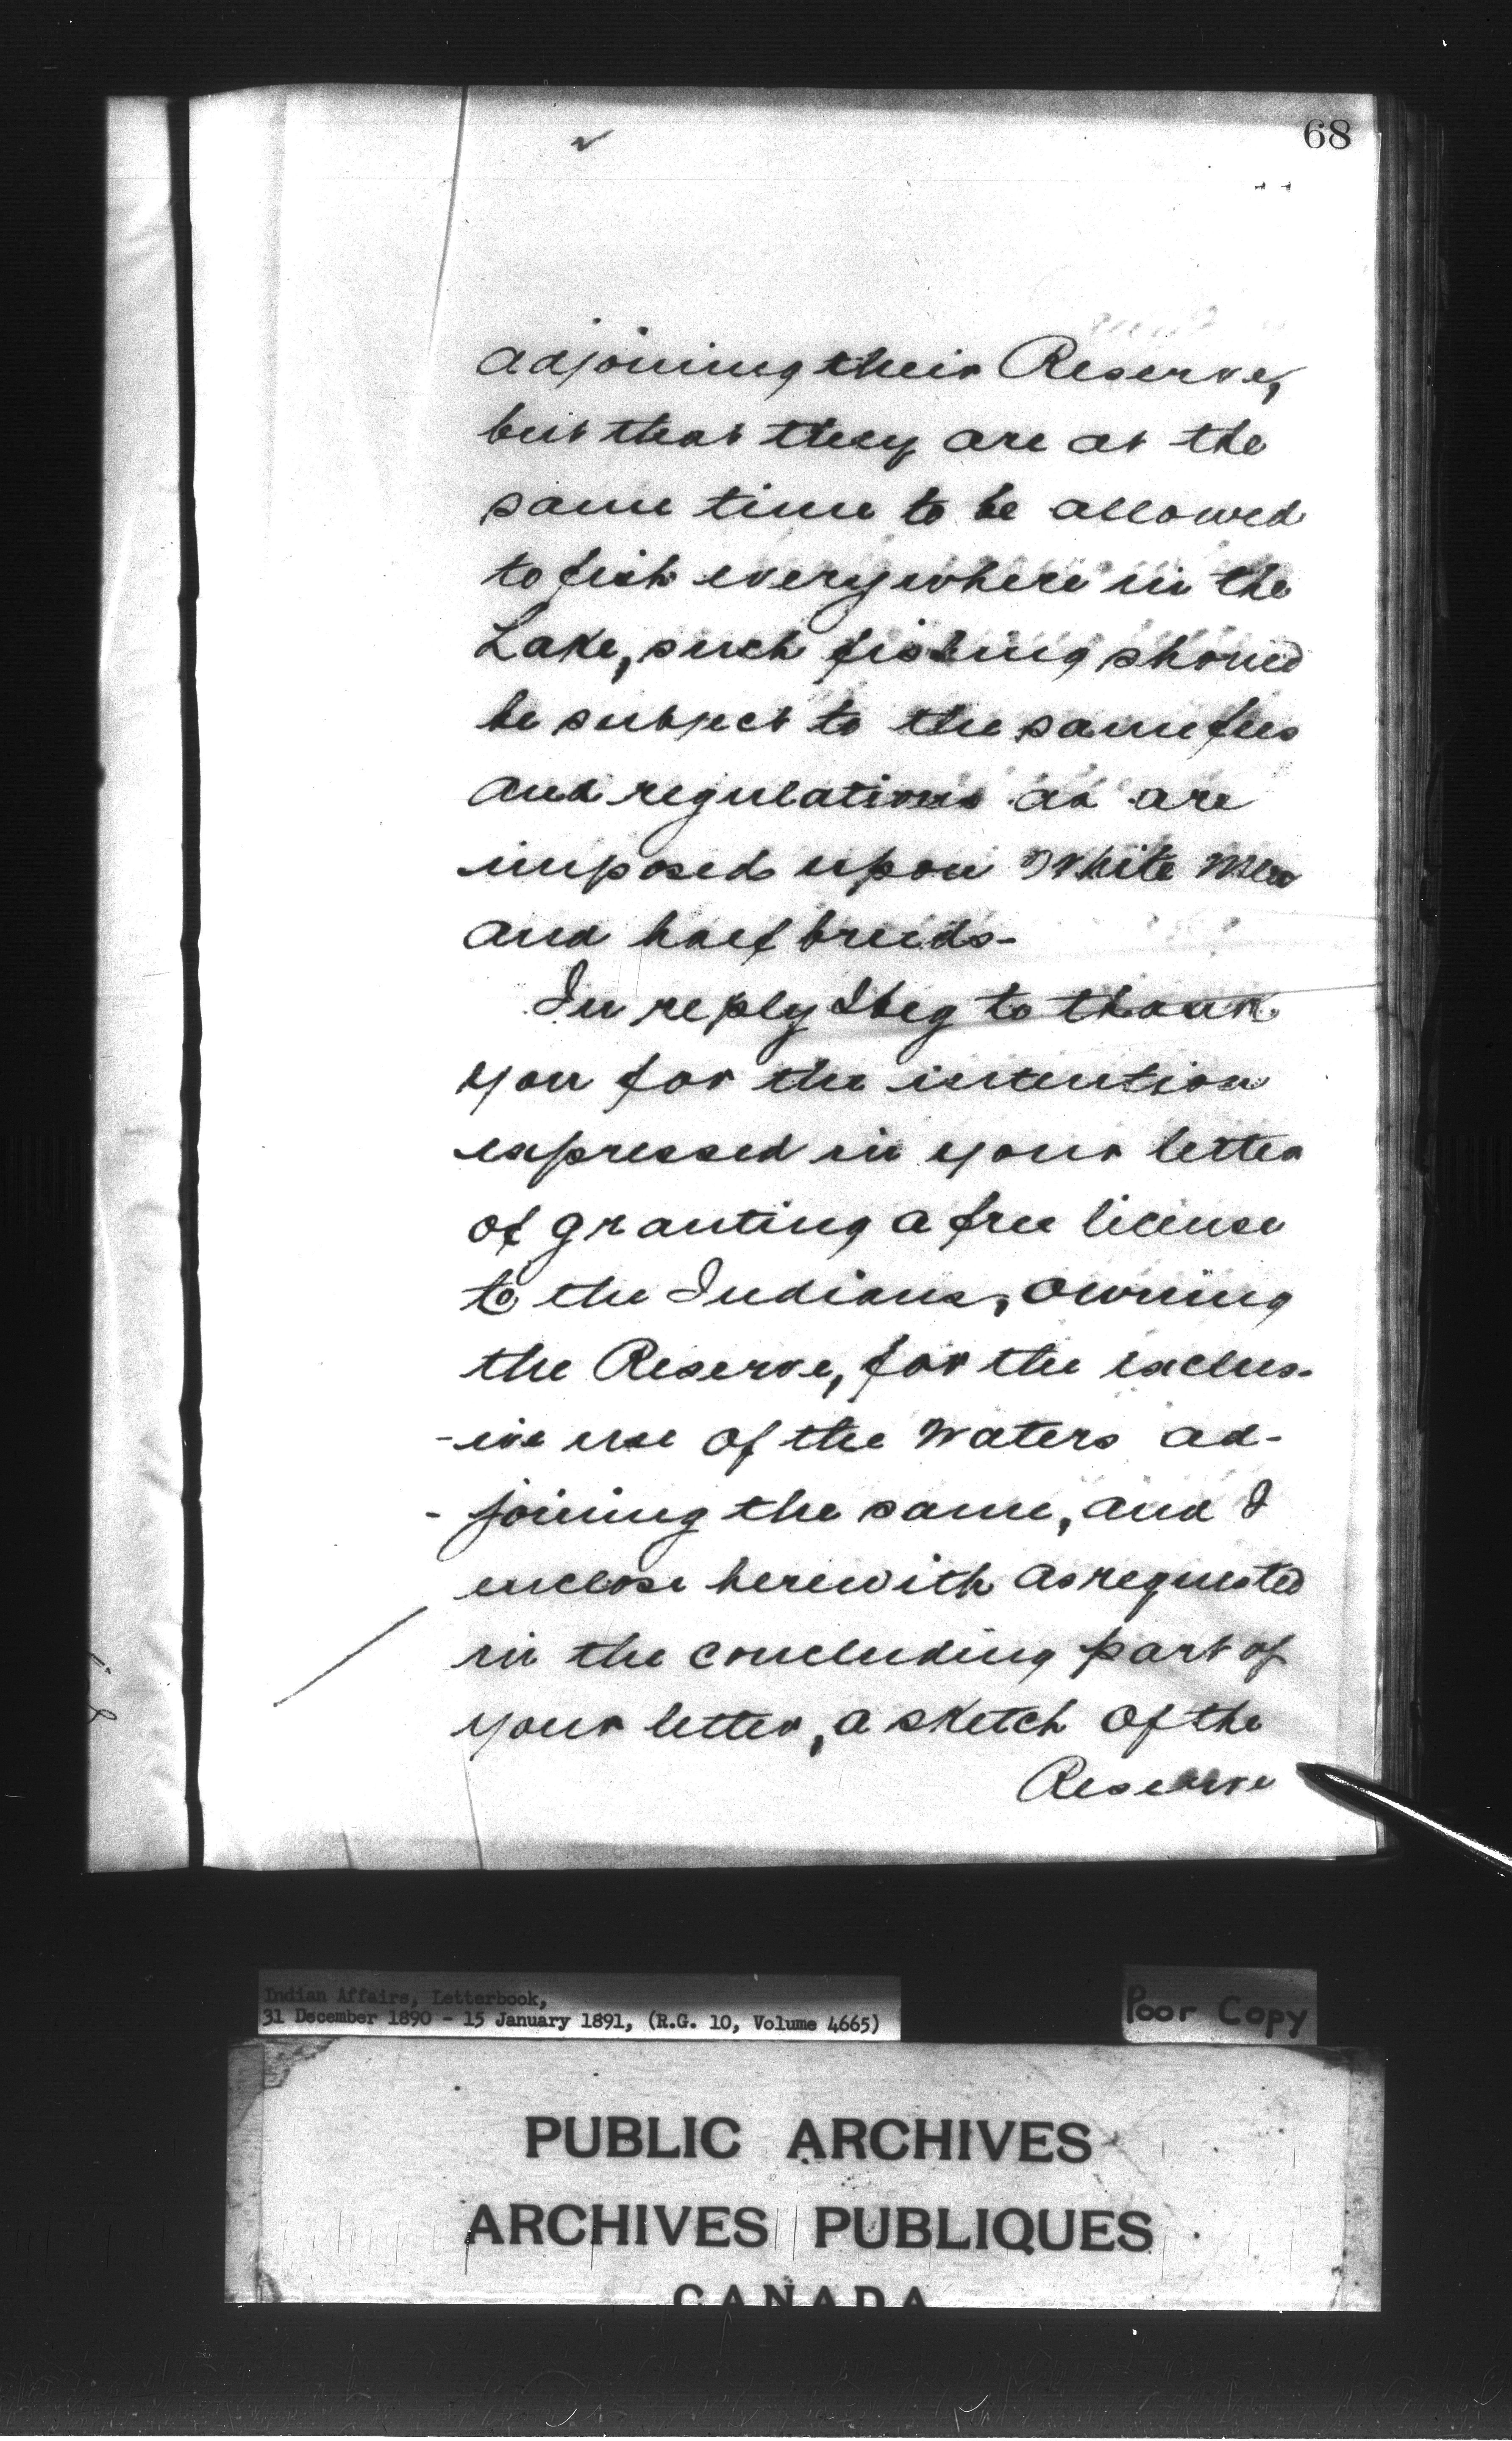 68
adjoining their Reserve,
but that they are at the
same time to be allowed
to fish everywhere in the
Lake, such fishing should
be subject to the same fees
and regulations as are
imposed upon White Men
and half breeds-
In reply I beg to thank
you for the intention
expressed in your letter
of granting a free license
to the Indians, owning
the Reserve, for the exclus-
-ive use of the waters ad-
-joining the same, and I
enclose herewith as requested
in the concluding part of
your letter, a sketch of the
Reserve
Indian Affairs, Letterbook,
31 December 1890 - 15 January 1891, (R.G. 10, Volume 4665)
Poor Copy
PUBLIC ARCHIVES
ARCHIVES PUBLIQUES
CANADA